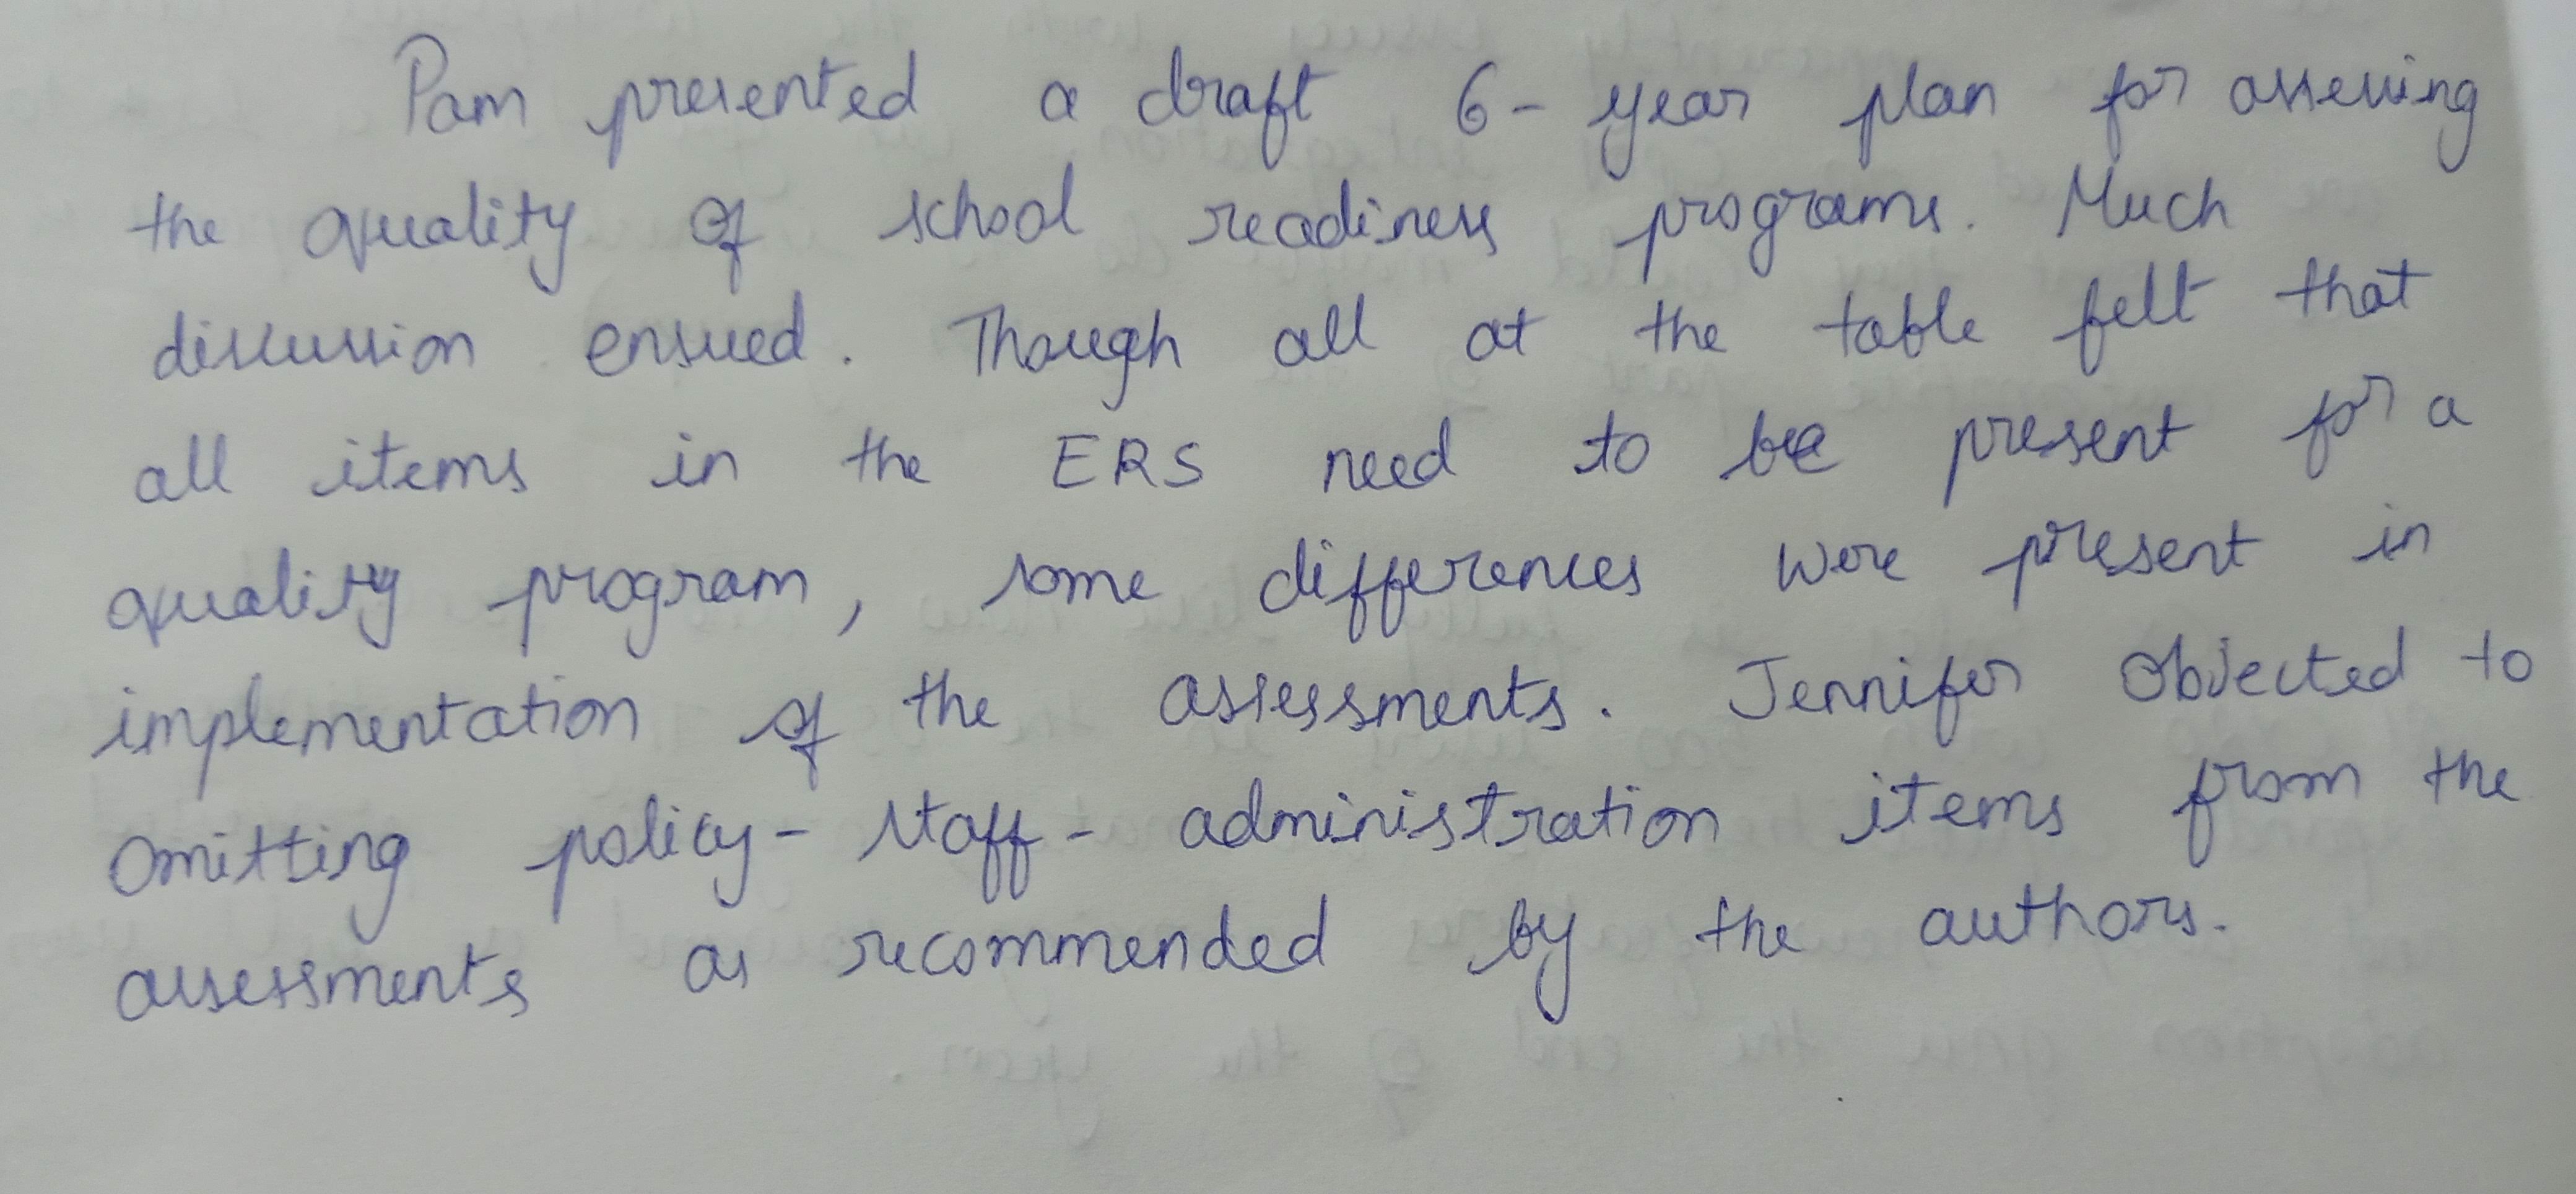 Pam presented a draft 6-year plan for assessing
the quality of school readiness programs. Much
discussion ensued. Though all at the table felt that
all items in the ERS need to be present for a
quality program, some differences were present in
implementation of the assessments. Jennifer objected to
omitting policy-staff-administration items from the
assessments as recommended by the authors.